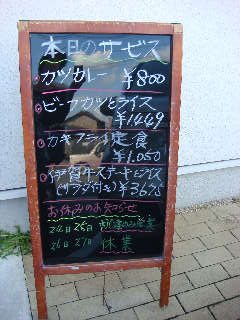 本日のサービス
カツカレー ¥800
ビーフカツとライス
¥1449
カキフライ定食
¥1,050
伊賀牛ステーキとライス
(サラダ付き) ¥3675
お休みのお知らせ
24日 25日 営業
26日 27日 休業